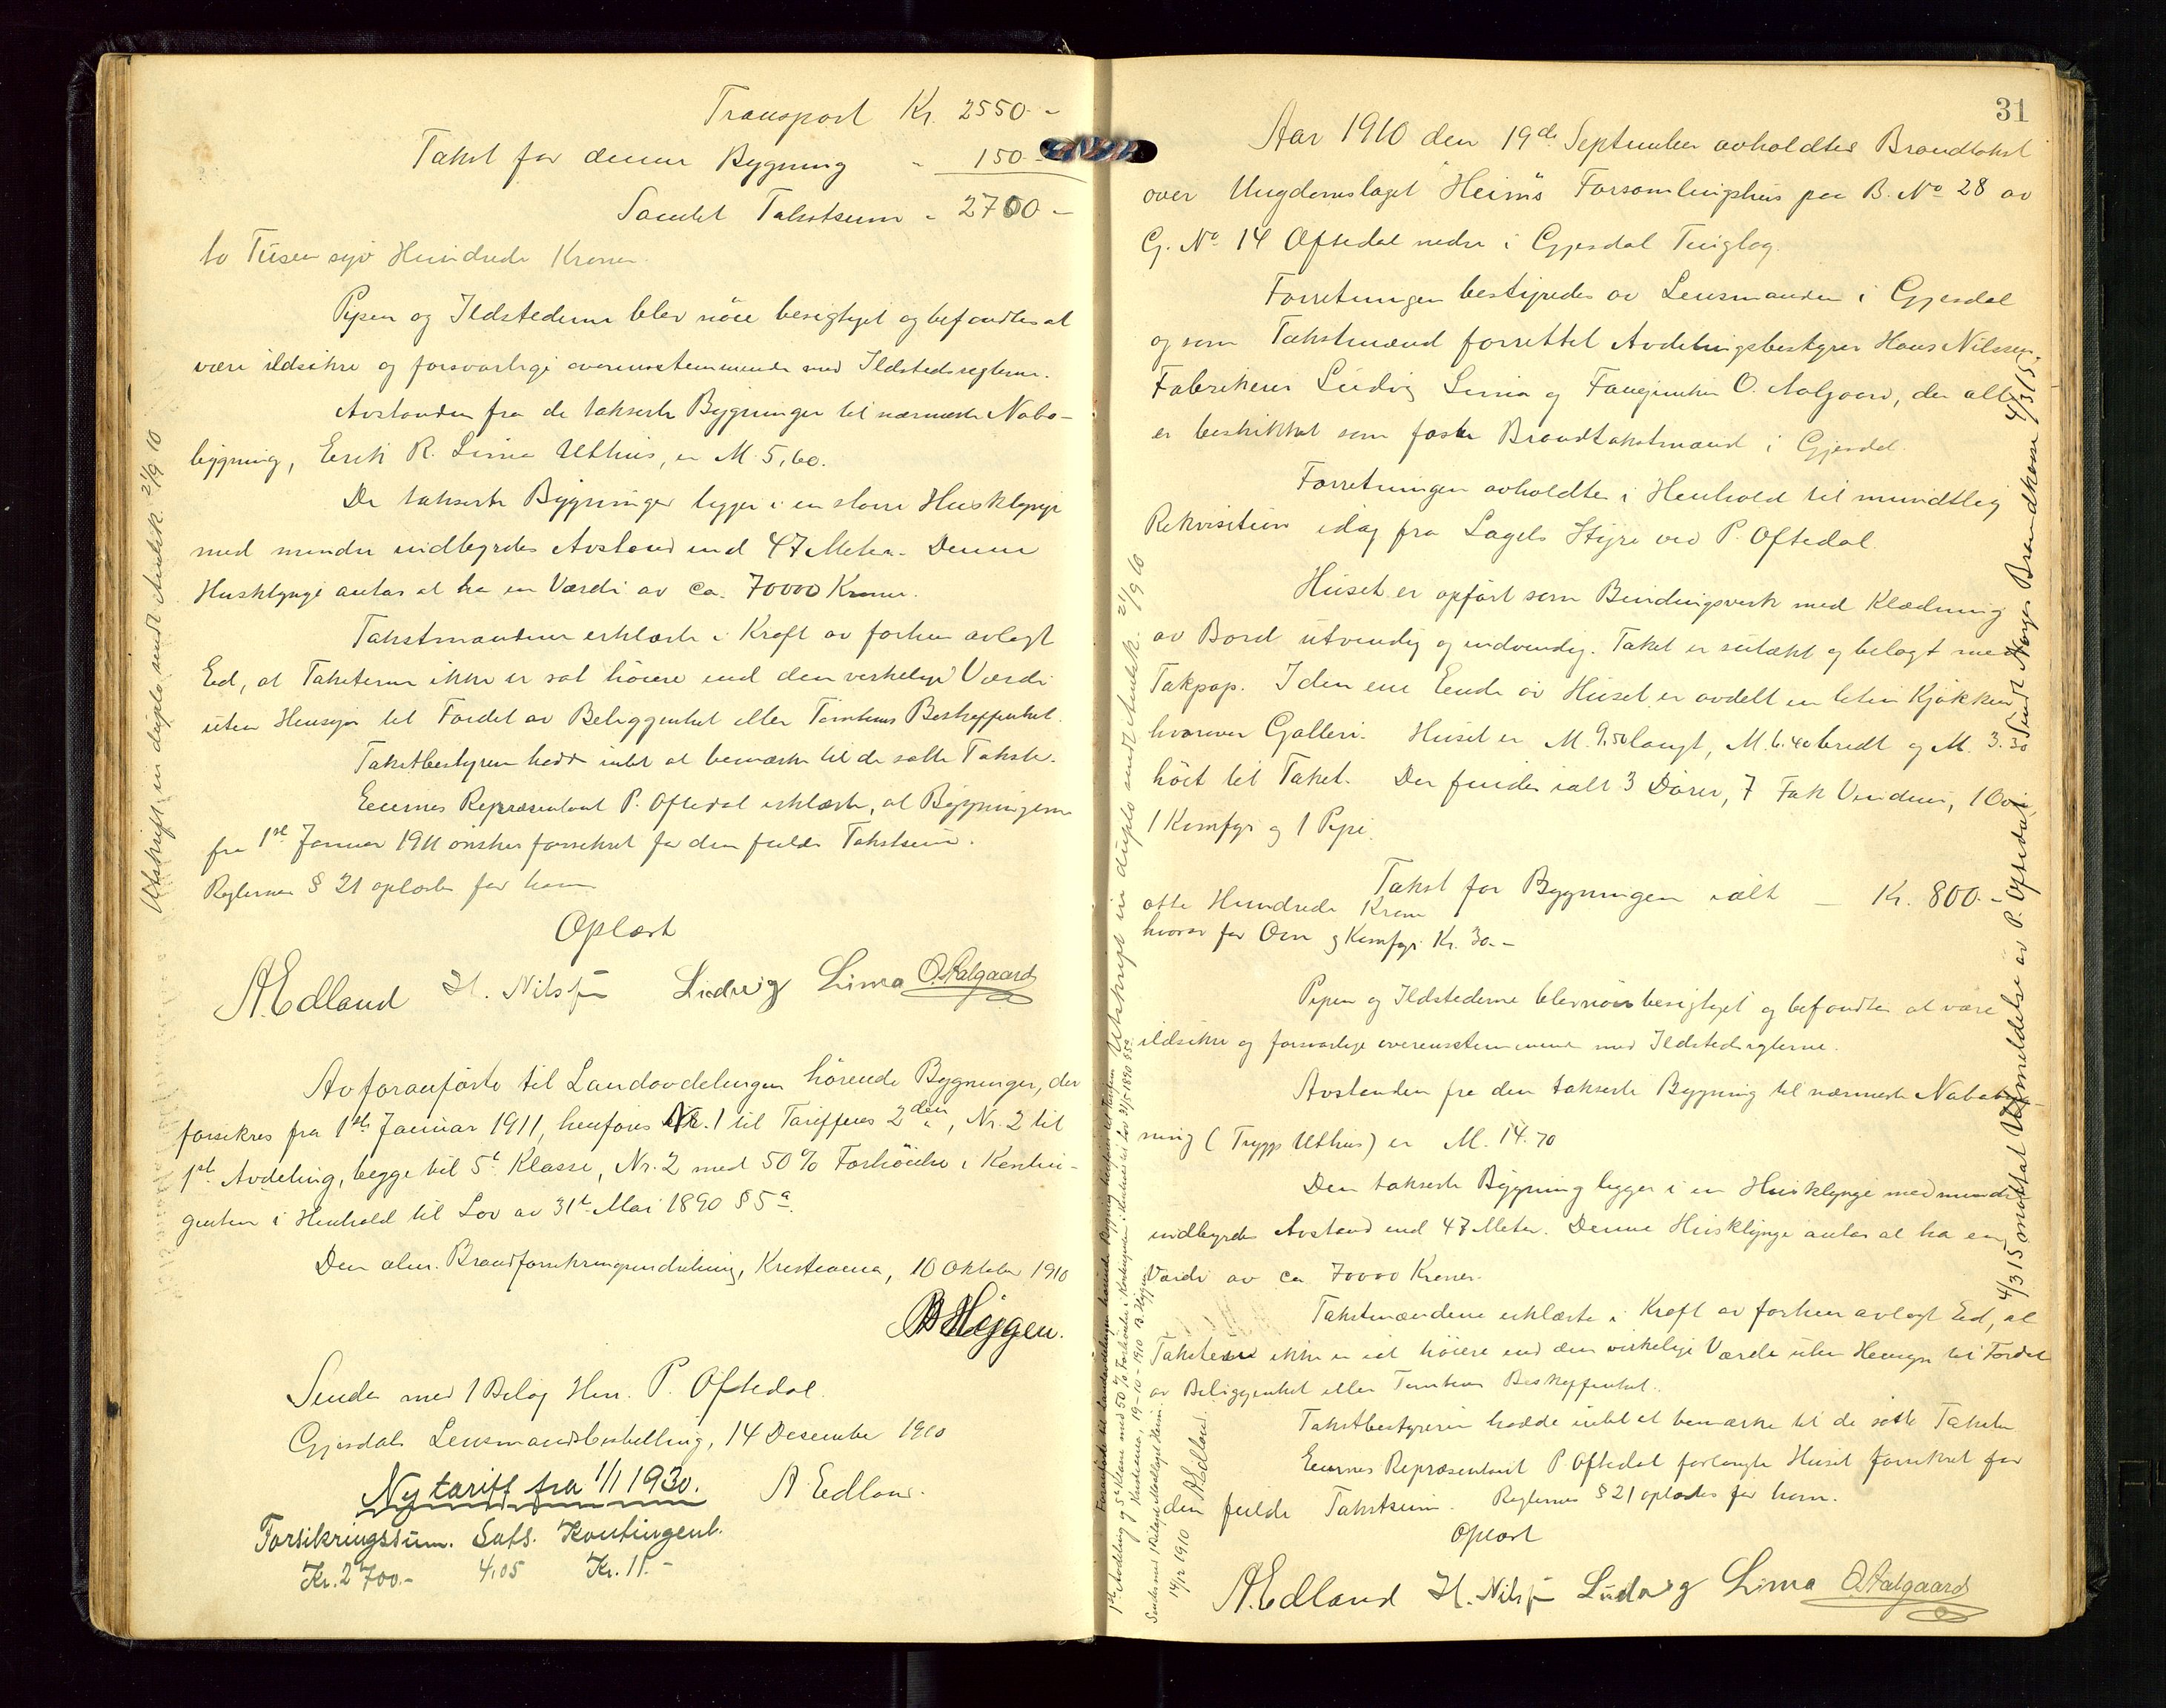 Transport Kr. 2550.-
Takst for denne Bygning - 150.-
Samlet Takstsum - 2700 -
to Tusen syv Hundrede Kroner.
Pipen og Ildstederne blev nöie besigtiget og befandtes at
være ildsikre og forsvarlige overensstemmende med Ildstedsreglerne.
Avstanden fra de takserte Bygninger til nærmeste Nabo-
bygning, Eerik R. Lima Uthus, er M. 5,60.
De takserte Bygninger ligger i en större Husklynge
med mindre indbyrdes Avstand end 47 Meter. Denne
Husklynge antas at ha en Værdi av ca. 70000 Kroner.
Takstmændene erklærte i Kraft av forhen avlagt
Eed, at Taksterne ikke er sat höiere end den virkelige Værdi
uten Hensyn til Fordel av Beliggenhet eller Tomtens Beskaffenhet.
Takstbestyreren hadde intet at bemærke til de satte Takster.
Eiernes Repræsentant P. Oftedal erklærte, at Bygningerne
fra 1ste Januar 1911 önskes forsikret for den fulde Takstsum.
Reglernes § 21 oplæstes for ham
Oplæst
A. Edland H. Nilssen Ludvig Lima O. Aalgaard
Av foranförte til Landavdelingen hörende Bygninger, der
forsikres fra 1ste Januar 1911, henföres Nr. 1 til Tariffens 2den, Nr. 2 til
1ste Avdeling, begge til 5te Klasse, Nr. 2 med 50 % Forhöielse i Kontin-
genten i Henhold til Lov av 31te Mai 1890 § 5a.
Den alm. Brandforsikringsindretning, Kristiania, 10 Oktober 1910
B. Heggen.
Sendes med 1 Bilag Hrr. P. Oftedal.
Gjesdals Lensmandsbestilling, 14 Desember 1910
A. Edland.
Ny tariff fra 1/1 1930.
Forsikringssum. Sats. Kontingent.
Kr. 2700.- 4,05 Kr. 11.-
Utskrift in duplo sendt Amtsk. 21/9 10
31
Aar 1910 den 19de September avholdtes Brandtakst
over Ungdomslaget "Heim"s Forsamlingshus paa B. No 28 av
G. No 14 Oftedal nedre i Gjesdal Tinglag.
Forretningen bestyredes av Lensmanden i Gjesdal
og som Takstmænd forrettet Avdelingsbestyrer Hans Nilssen,
Fabrikeier Ludvig Lima og O. Aalgaard, der alle
er beskikket som faste Brandtakstmænd i Gjesdal.
Forretningen avholdtes i Henhold til mundtlig
Rekvisition idag fra Lagets Styre ved P. Oftedal.
Huset er opfört som Bindingsverk med Klædning
av Bord utvendig og indvendig. Taket er sutækt og belagt med
Takpap. I den ene Ende av Huset er avdelt en liten Kjökken
hvorover Galleri. Huset er M. 9,50 langt, M. 6.40 bredt og M. 3.30
höit til Taket. Der findes ialt 3 Dörer, 7 Fak Vinduer, 1 Ovn,
1 Komfyr og 1 Pipe.
Takst for Bygningen ialt - Kr. 800.-
otte Hundrede Kroner
hvorav for Ovn og Komfyr Kr. 30.-
Pipen og Ildstederne blev nöie besigtiget og befandtes at være
ildsikre og forsvarlige overensstemmende med Ildstedsreglerne.
Avstanden fra den takserte Bygning til nærmeste Nabobyg-
ning (Tryggs Uthus) er M. 14.70
Den takserte Bygning ligger i en Husklynge med mindre
indbyrdes Avstand end 47 Meter. Denne Husklynge antas at ha en
Værdi av ca 70000 Kroner.
Takstmændene erklærte i Kraft av forhen avlagt Eed, at
Taksterne ikke er sat höiere end den virkelige Værdi uten Hensyn til Fordel
av Beliggenhet eller Tomtens Beskaffenhet.
Takstbestyreren hadde intet at bemærke til de satte Takster
Eiernes Repræsentant P. Oftedal forlangte Huset forsikret for
den fulde Takstsum. Reglernes § 21 oplæstes for ham.
Oplæst
A. Edland H. Nilssen Ludvig Lima O. Aalgaard
Utskrift in duplo sendt Amtsk. 21/9 10
Foranförte til Landavdelingen hörende Bygning henföres til Tariffens
1ste Avdeling og 5te Klasse med 50 % Forhöielse i Kontingenten i Henhold til Lov 31/5 1890 § 5a.
Kristiania, 19-10-1910 B. Heggen
Sendes med 1 Bilag Ungdomslaget Heim.
14/12 1910 A. Edland.
4/3 15 mottat Utmeldelse av P. Oftedal. Sendt Norges Brandkasse 4/3 15.